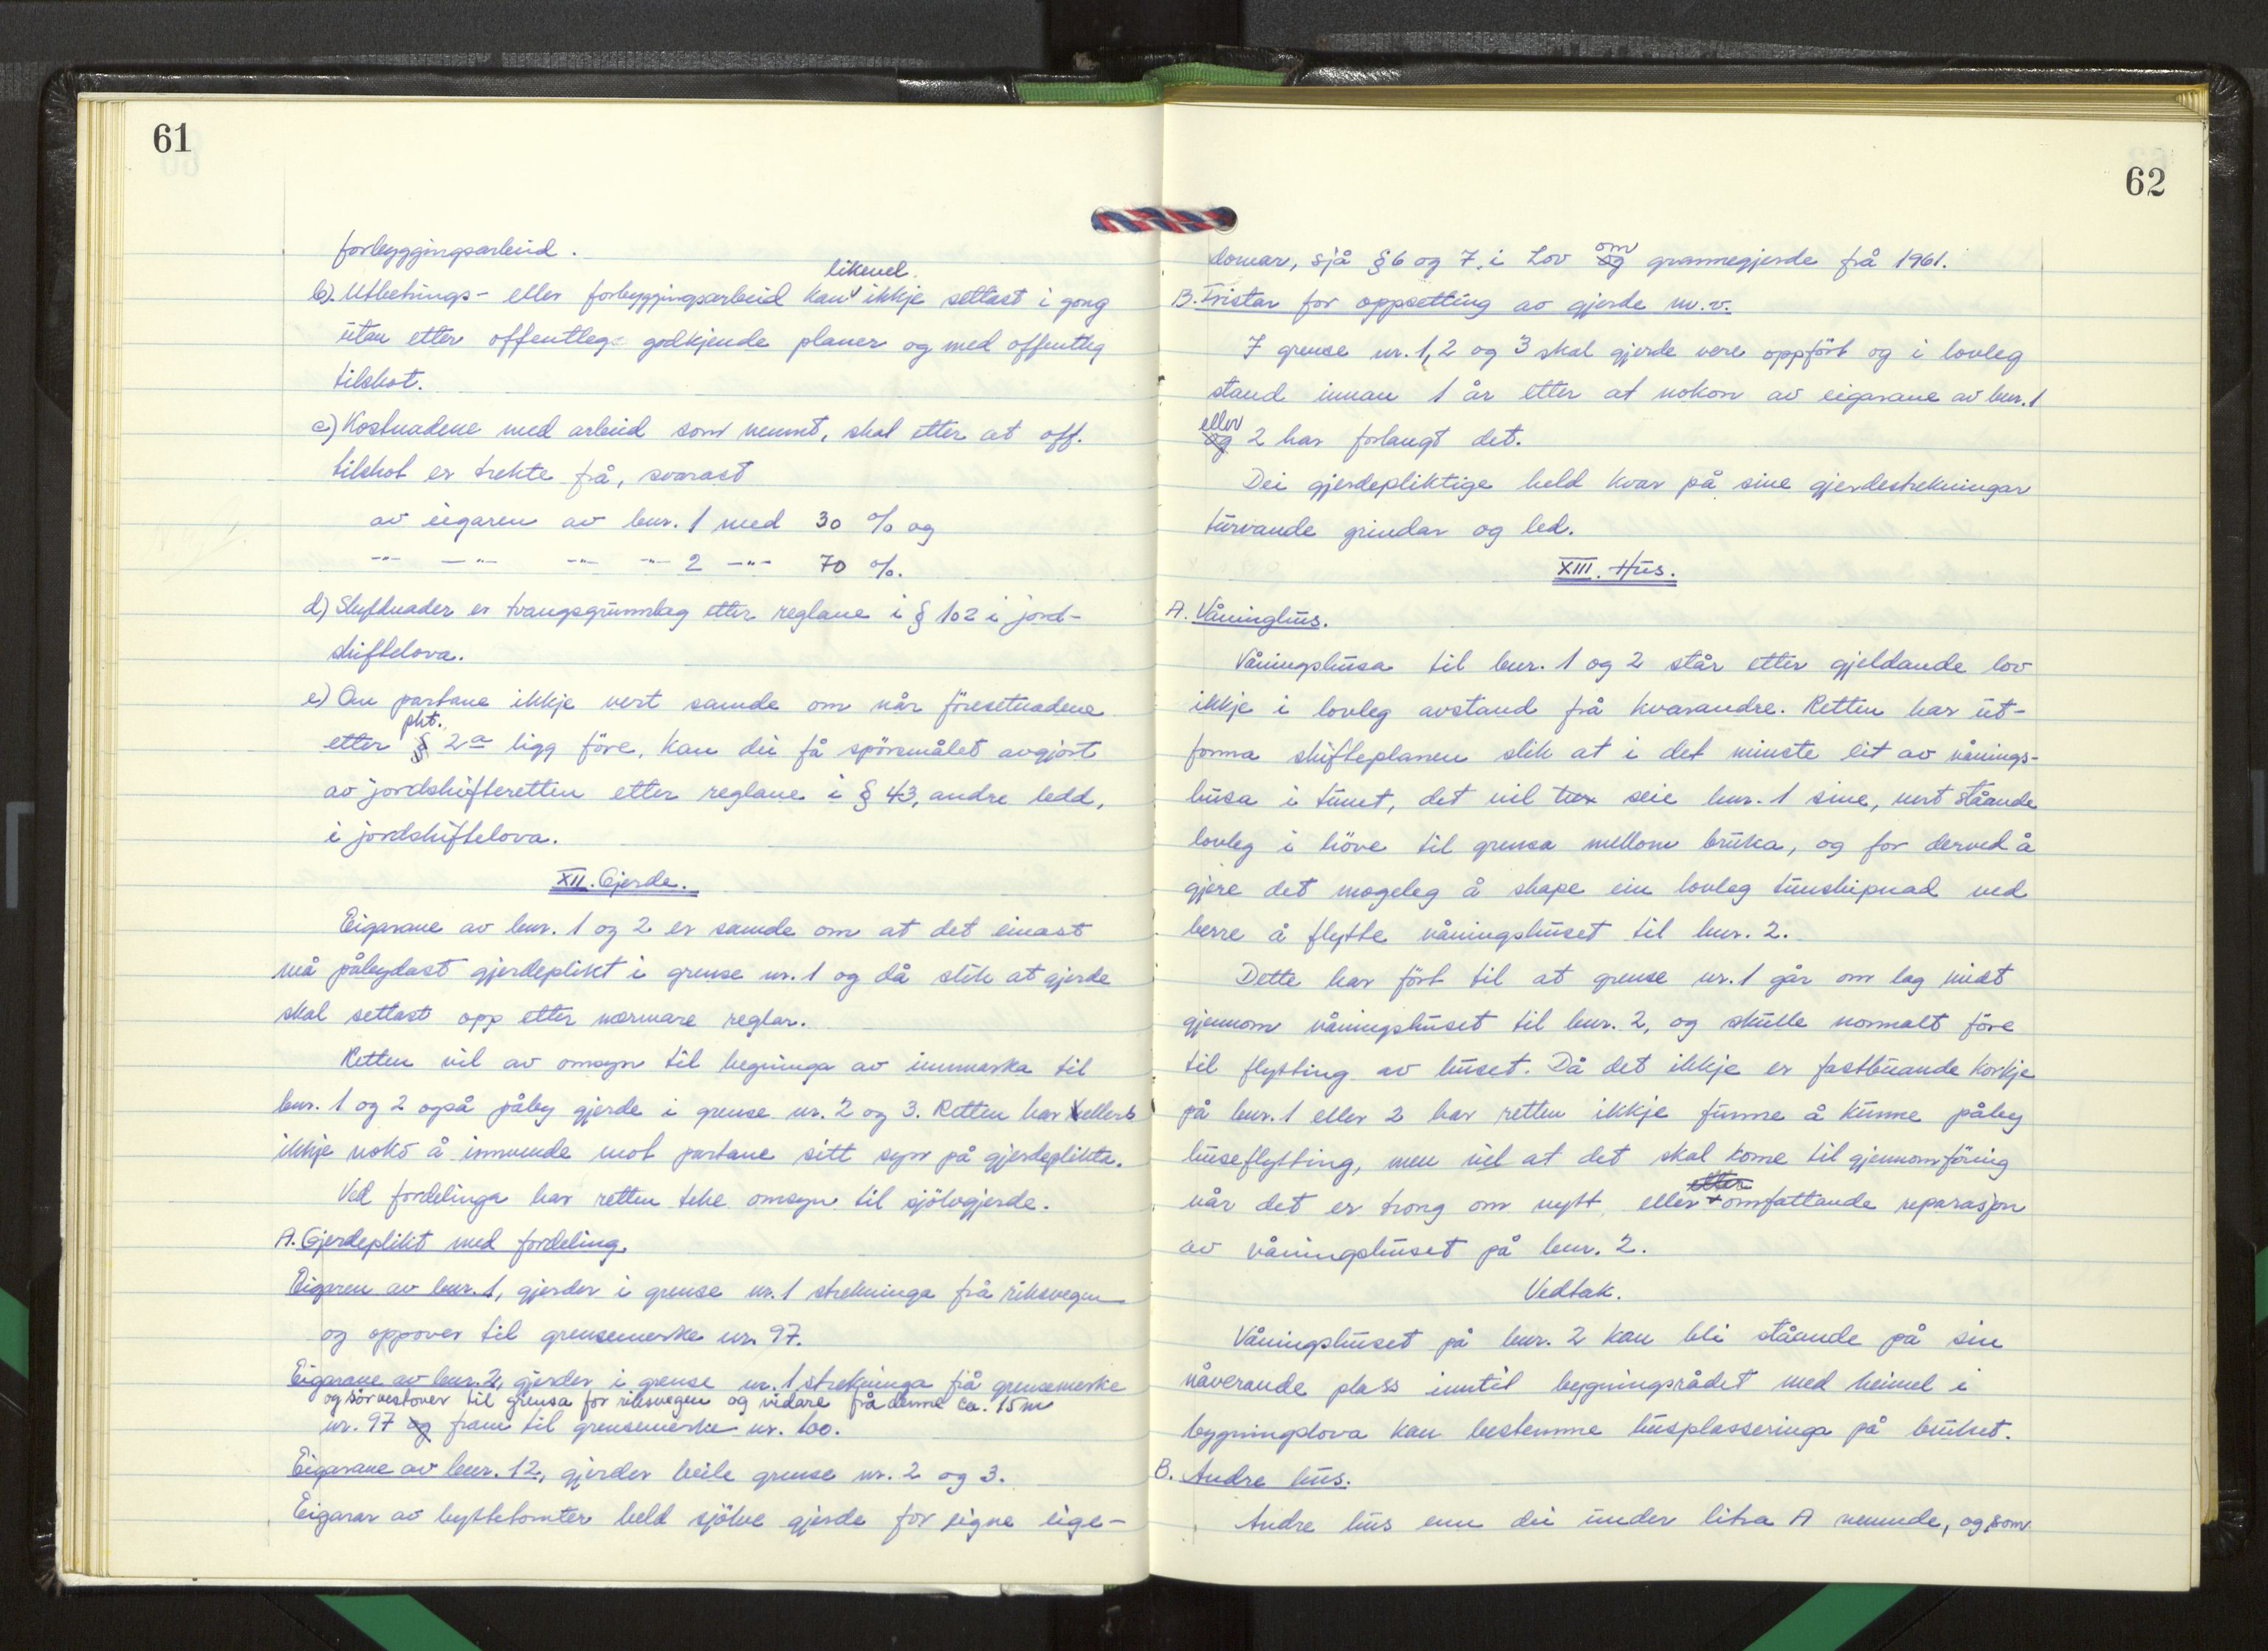 61
forbyggingsarbeid.
likevel
b). Utbetrings- eller forbyggingsarbeid kan ikkje settast i gong
utan etter offentleg godkjende planer og med offentleg
tilskot.
c) Kostnadene med arbeid som nemnt, skal etter at off.
tilskot er trekte frå, svarast
av eigaren av bnr. 1 med 30 % og
-"- -"- -"- -"- 2 -"- 70 %.
d) Skyldnader er tvangsgrunnlag etter reglane i § 102 i jord-
skiftelova.
e) Om partane ikkje vert samde om når föresetnadene
pkt.
etter § 2a ligg föve, kan dei få spörsmålet avgjort
av jordskifteretten etter reglane i § 43, andre ledd,
i jordskiftelova.
XII. Gjerde.
Eigarane av bnr. 1 og 2 er samde om at det einast
må påleydast gjerdeplikt i grense nr. 1 og då slik at gjerde
skal settast opp etter nærmare reglar.
Retten vil av omsyn til hegninga av innmarka til
bnr. 1 og 2 også påby gjerde i grense nr. 2 og 3. Retten har ellers
ikkje noko å innvende mot partane sitt syn på gjerdeplikta.
Ved fordelinga har retten teke omsyn til sjölvgjerde.
A. Gjerdeplikt med fordeling.
Eigaren av bnr. 1, gjerder i grense nr. 1 strekninga frå riksvegen
og oppover til grensemerke nr. 97.
Eigarane av bnr. 2, gjerder i grense nr. 1 strekninga frå grensemerke
og sörvestover til grensa for riksvegen og vidare frå denne ca. 15 m
nr. 97 og fram til grensemerke nr. 100.
Eigarane av bnr. 12, gjerder heile grense nr. 2 og 3.
Eigarar av hyttetomter held sjölve gjerde for eigne eige-
62
domar, sjå § 6 og 7, i Lov og om grannegjerde frå 1961.
B. Fristar for oppsetting av gjerde m.v.
I grense nr. 1, 2 og 3 skal gjerde vere oppfört og i lovleg
stand innan 1 år etter at nokon av eigarane av bnr. 1
eller
og 2 har forlangt det.
Dei gjerdepliktige held kvar på sine gjerdestrekningar
turvande grindar og led.
XIII. Hus.
A. Våninghus.
Våningshusa til bnr. 1 og 2 står etter gjeldande lov
ikkje i lovleg avstand frå kvarandre. Retten har ut-
forma skifteplanen slik at i det minste eit av vånings-
husa i tunet, det vil seie bnr. 1 sine, vert ståande
lovleg i höve til grensa mellom bruka, og for derved å
gjere det mogeleg å skape ein lovleg tunskipnad ved
berre å flytte våningshuset til bnr. 2.
Dette har fört til at grense nr. 1 går om lag midt
gjennom våningshuset til bnr. 2, og skulle normalt före
til flytting av huset. Då det ikkje er fastbuande korkje
på bnr. 1 eller 2 har retten ikkje funne å kunne påby
huseflytting, men vil at det skal kome til gjennomföring
etter
når det er trong om nytt eller omfattande reparasjon
av våningshuset på bnr. 2.
Vedtak.
Våningshuset på bnr. 2 kan bli ståande på sin
nåverande plass inntil bygningsrådet med heimel i
bygningslova kan bestemme husplasseringa på bruket.
B. Andre hus.
Andre hus enn dei under litra A nemnde, og som